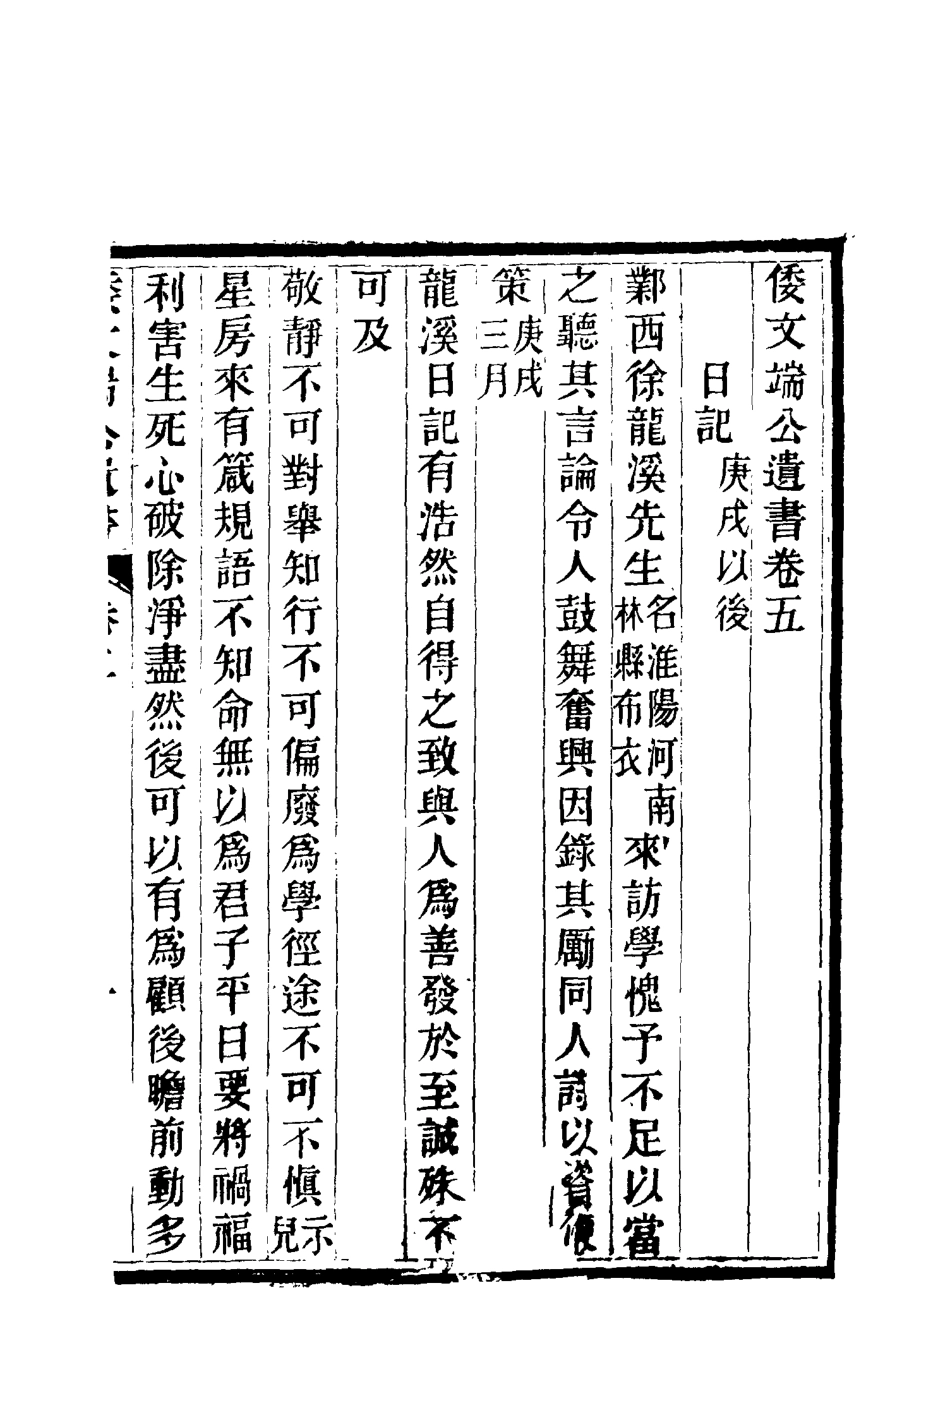 倭文端公遺書卷五
日記 庚戌以後
鄴西徐龍溪先生 名淮陽河南林縣布衣 來訪學愧予不足以當
之聽其言論令人鼓舞奮興因錄其勵同人詩以資
策 庚戌三月
龍溪日記有浩然自得之致與人爲善發於至誠殊不
可及
敬靜不可對舉知行不可偏廢爲學徑途不可不慎 示兒
星房來有箴規語不知命無以爲君子平日要將禍福
利害生死心破除淨盡然後可以有爲顧後瞻前動多